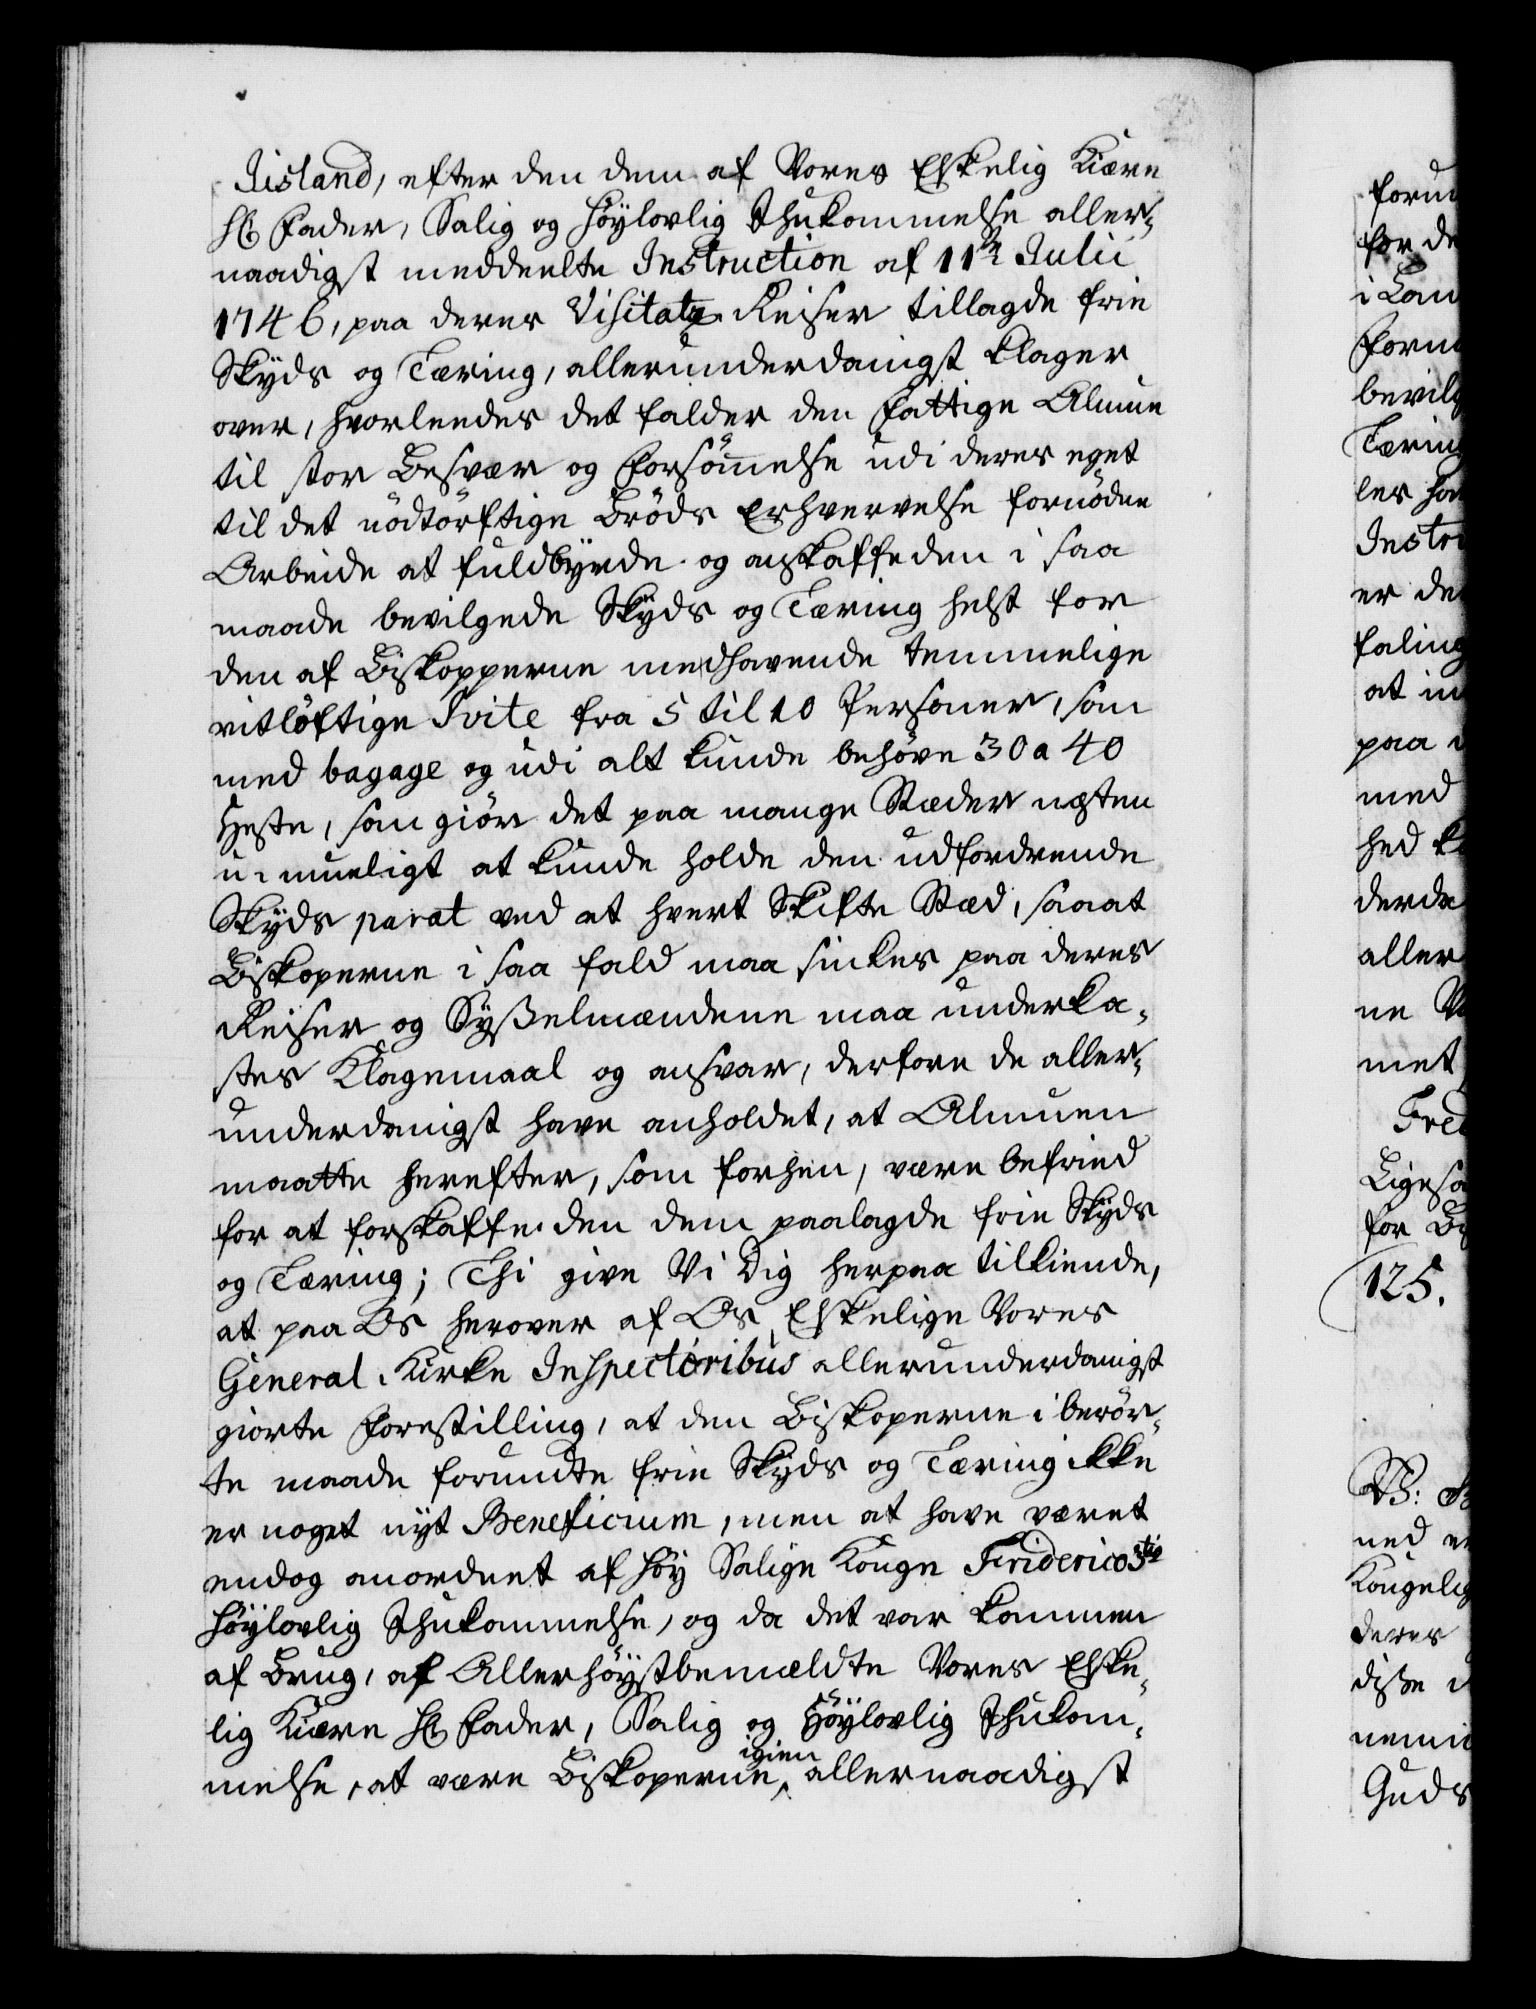 Iisland, efter den dem af Vores Elskelig Kiære
Hr Fader, Salig og Høylovlig Ihukommelse aller-
naadigst meddeelte Instruction af 11te Julii
1746, paa deres Visitatz Reiser tillagde frie
Skyds og Tæring, allerunderdanigst klager
over, hvorleedes det falder den fattige Almue
til stor Besvær og Forsømmelse udi deres eget
til det nödtörftige Bröds Erhvervelse fornödne
Arbeide at fuldbyrde og anskaffe den i saa
maade bevilgede Skyds og Tæring helst for
den af Biskopperne medhavende temmelige
vitlöftige Svite fra 5 til 10 Personer, som
med bagage og udi alt kunde behöve 30 a 40
Heste, som giör det paa mange Stæder næsten
u-mueligt at kunde holde den udfordrende
Skyds parat ved et hvert Skifte Stæd, saa at
Biskoperne i saa fald maa sinkes paa deres
Reiser og Sysselmændene maa underka-
stes Klagemaal og ansvar, derfore de aller-
underdanigst have anholdet, at Almuen
maatte herefter, som forhen, være befried
for at forskaffe den dem paalagde frie Skyds
og Tæring; Thi give Vi Dig herpaa tilkiende,
at paa Os herover af Os Elskelige Vores
General-Kirke Inspectoribus allerunderdanigst
giorte Forestilling, at den Biskoperne i berör-
te maade forundte frie Skyds og Tæring ikke
er noget nyt Beneficium, men at have været
endog anordnet af Höy Salige Konge Friderico 3tio
Höylovlig Ihukommelse, og da det var kommen
af Brug, af Allerhöystbemældte Vores Elske-
lig Kiære Hr Fader, Salig og Höylovlig Ihukom-
melse, at være Biskoperne igien allernaadigst
forun
for de
i Lan
Forun
bevilg
Tæring
les ha
Instru
er de
faling
at in
paa
med
hed k
derda
aller
ne V
met
Fred
Ligesa
for Bi
125.
ned
Kongelig
deres
disse
nemi
Guds